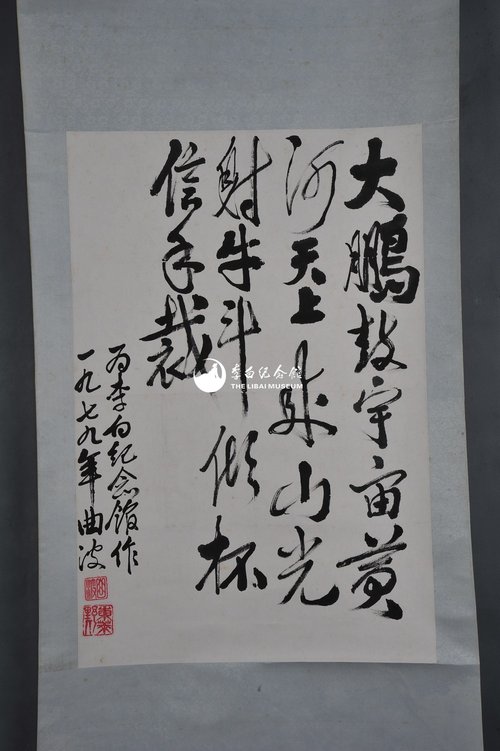 大鹏鼓宇宙黄
河天上来山光
射牛斗倾杯
信手裁
为李白纪念馆作
一九七九年 曲波
李白纪念馆
THE LIBAI MUSEUM